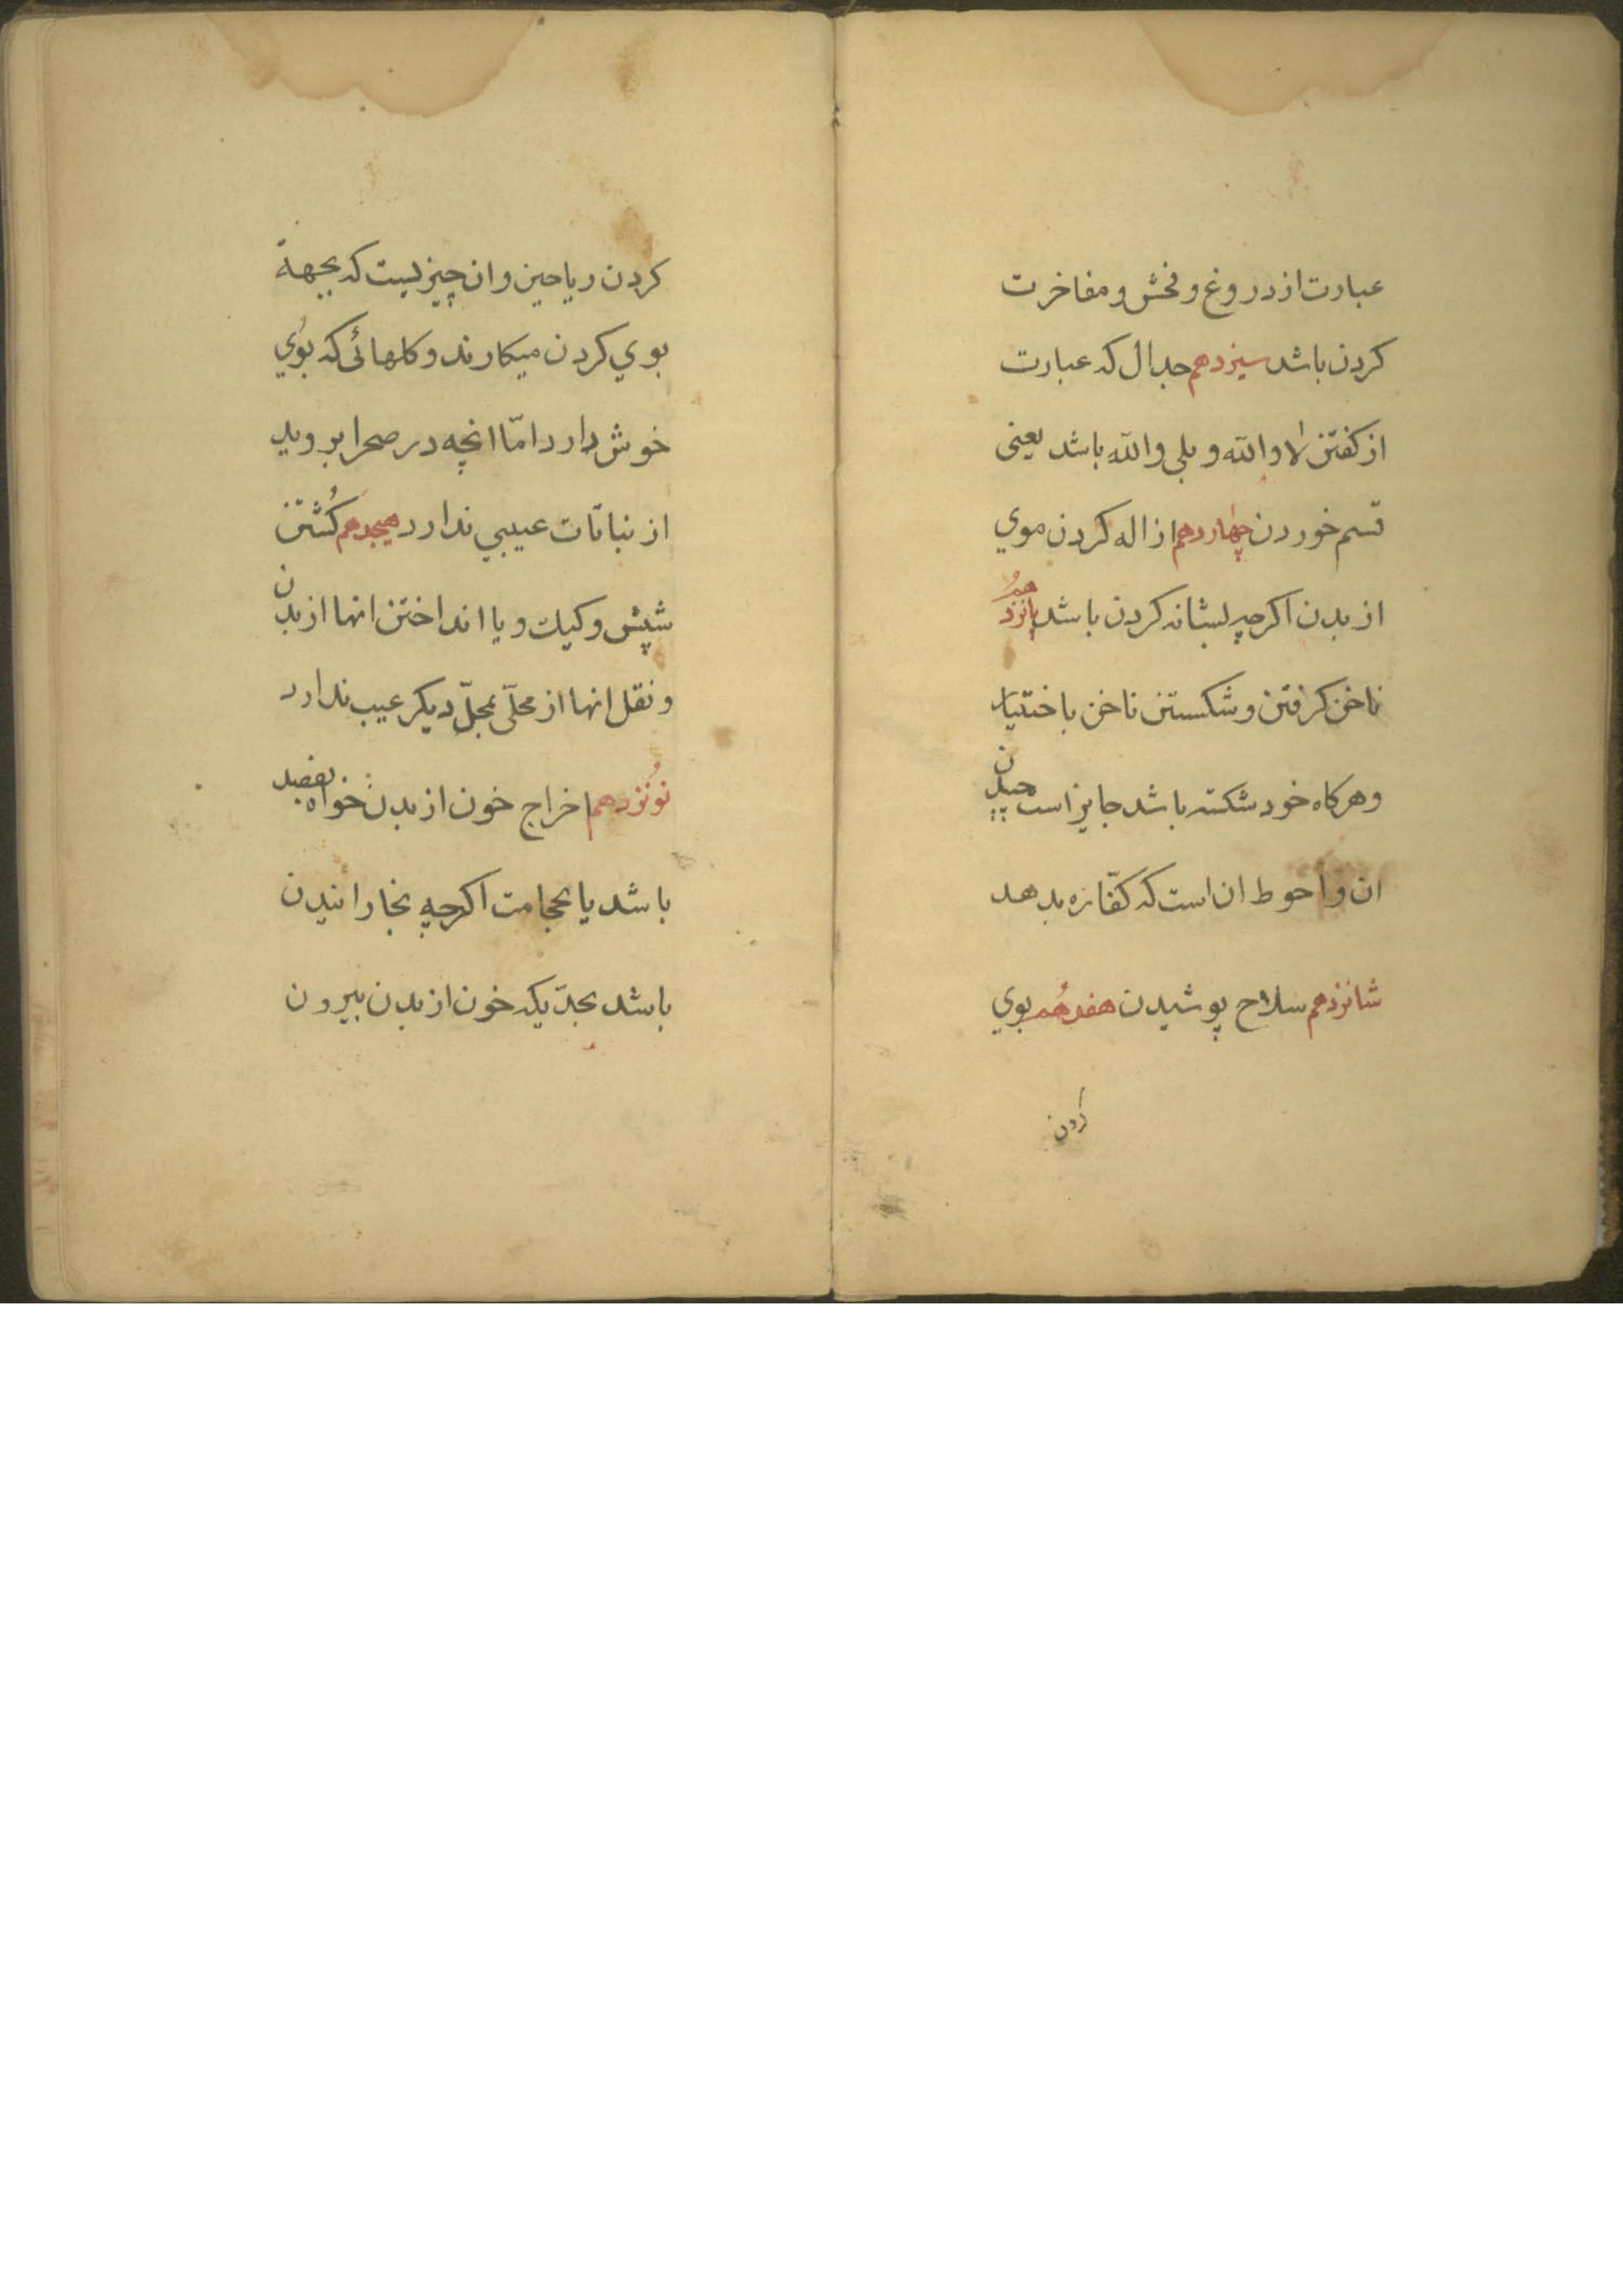 عبارت از دروغ و فحش و مفاخرت
کردن باشد سیزدهم جدال که عبارت
از کفتن لا والله و بلی والله باشد یعنی
قسم خوردن چهاردهم ازاله کردن موي
از بدن اکرچه بشانه کردن باشد پانزدهم
ناخن کرفتن و شکستن ناخن باختیار
و هرکاه خود شکسته باشد جایز است چیدن
ان و احوط ان است که کفّاره بدهد
شانزدهم سلاح پوشیدن هفدهُم بوي
کردن
کردن ریاحین و ان چیزیست که بجهة
بوي کردن میکارند و کلهائی که بُوي
خوش دارد امّا انچه در صحرا بروید
از نباتات عیبي ندارد هیجدهم کُشتن
شپش و کیك و یا انداختن انها از بدن
و نقل انها از محلّی بمحلّ دیکر عیب ندارد
نوُنزدهم اخراج خون از بدن خواه بفصد
باشد یا بحجامت اکرچه بخارانیدن
باشد بحدّیکه خون از بدن بیرون